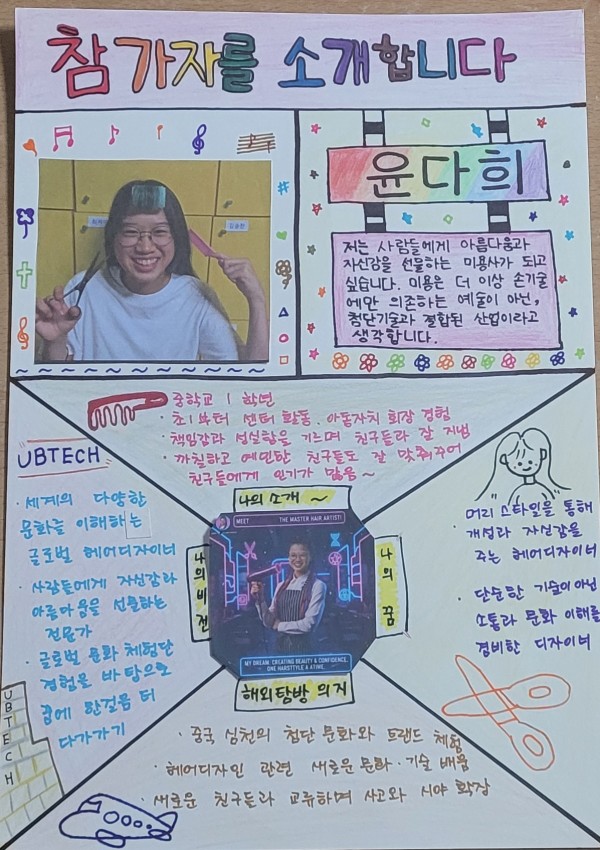 참가자를 소개합니다
윤다희
저는 사람들에게 아름다움과
자신감을 선물하는 미용사가 되고
싶습니다. 미용은 더 이상 손기술
에만 의존하는 예술이 아닌,
첨단기술과 결합된 산업이라고
생각합니다.
중학교 1학년
· 초1부터 센터 활동. 아동자치 회장 경험
· 책임감과 성실함을 기르며 친구들과 잘 지냄
· 까칠하고 예민한 친구들도 잘 맞춰주어
친구들에게 인기가 많음~
나의 소개 ~
UBTECH
· 세계의 다양한
문화를 이해하는
글로벌 헤어디자이너
· 사람들에게 자신감과
아름다움을 선물하는
전문가
· 글로벌 문화 체험단
경험을 바탕으로
꿈에 한걸음 더
다가가기
나의 비전
MEET THE MASTER HAIR ARTIST!
MY DREAM: CREATING BEAUTY & CONFIDENCE,
ONE HAIRSTYLE A
나의 꿈
머리 스타일을 통해
개성과 자신감을
주는 헤어디자이너
· 단순한 기술이 아닌
소통과 문화 이해를
겸비한 디자이너
해외탐방 의지
· 중국 심천의 첨단 문화와 트렌드 체험
· 헤어디자인 관련 새로운 문화·기술 배움
· 새로운 친구들과 교류하며 사고와 시야 확장
UBTECH